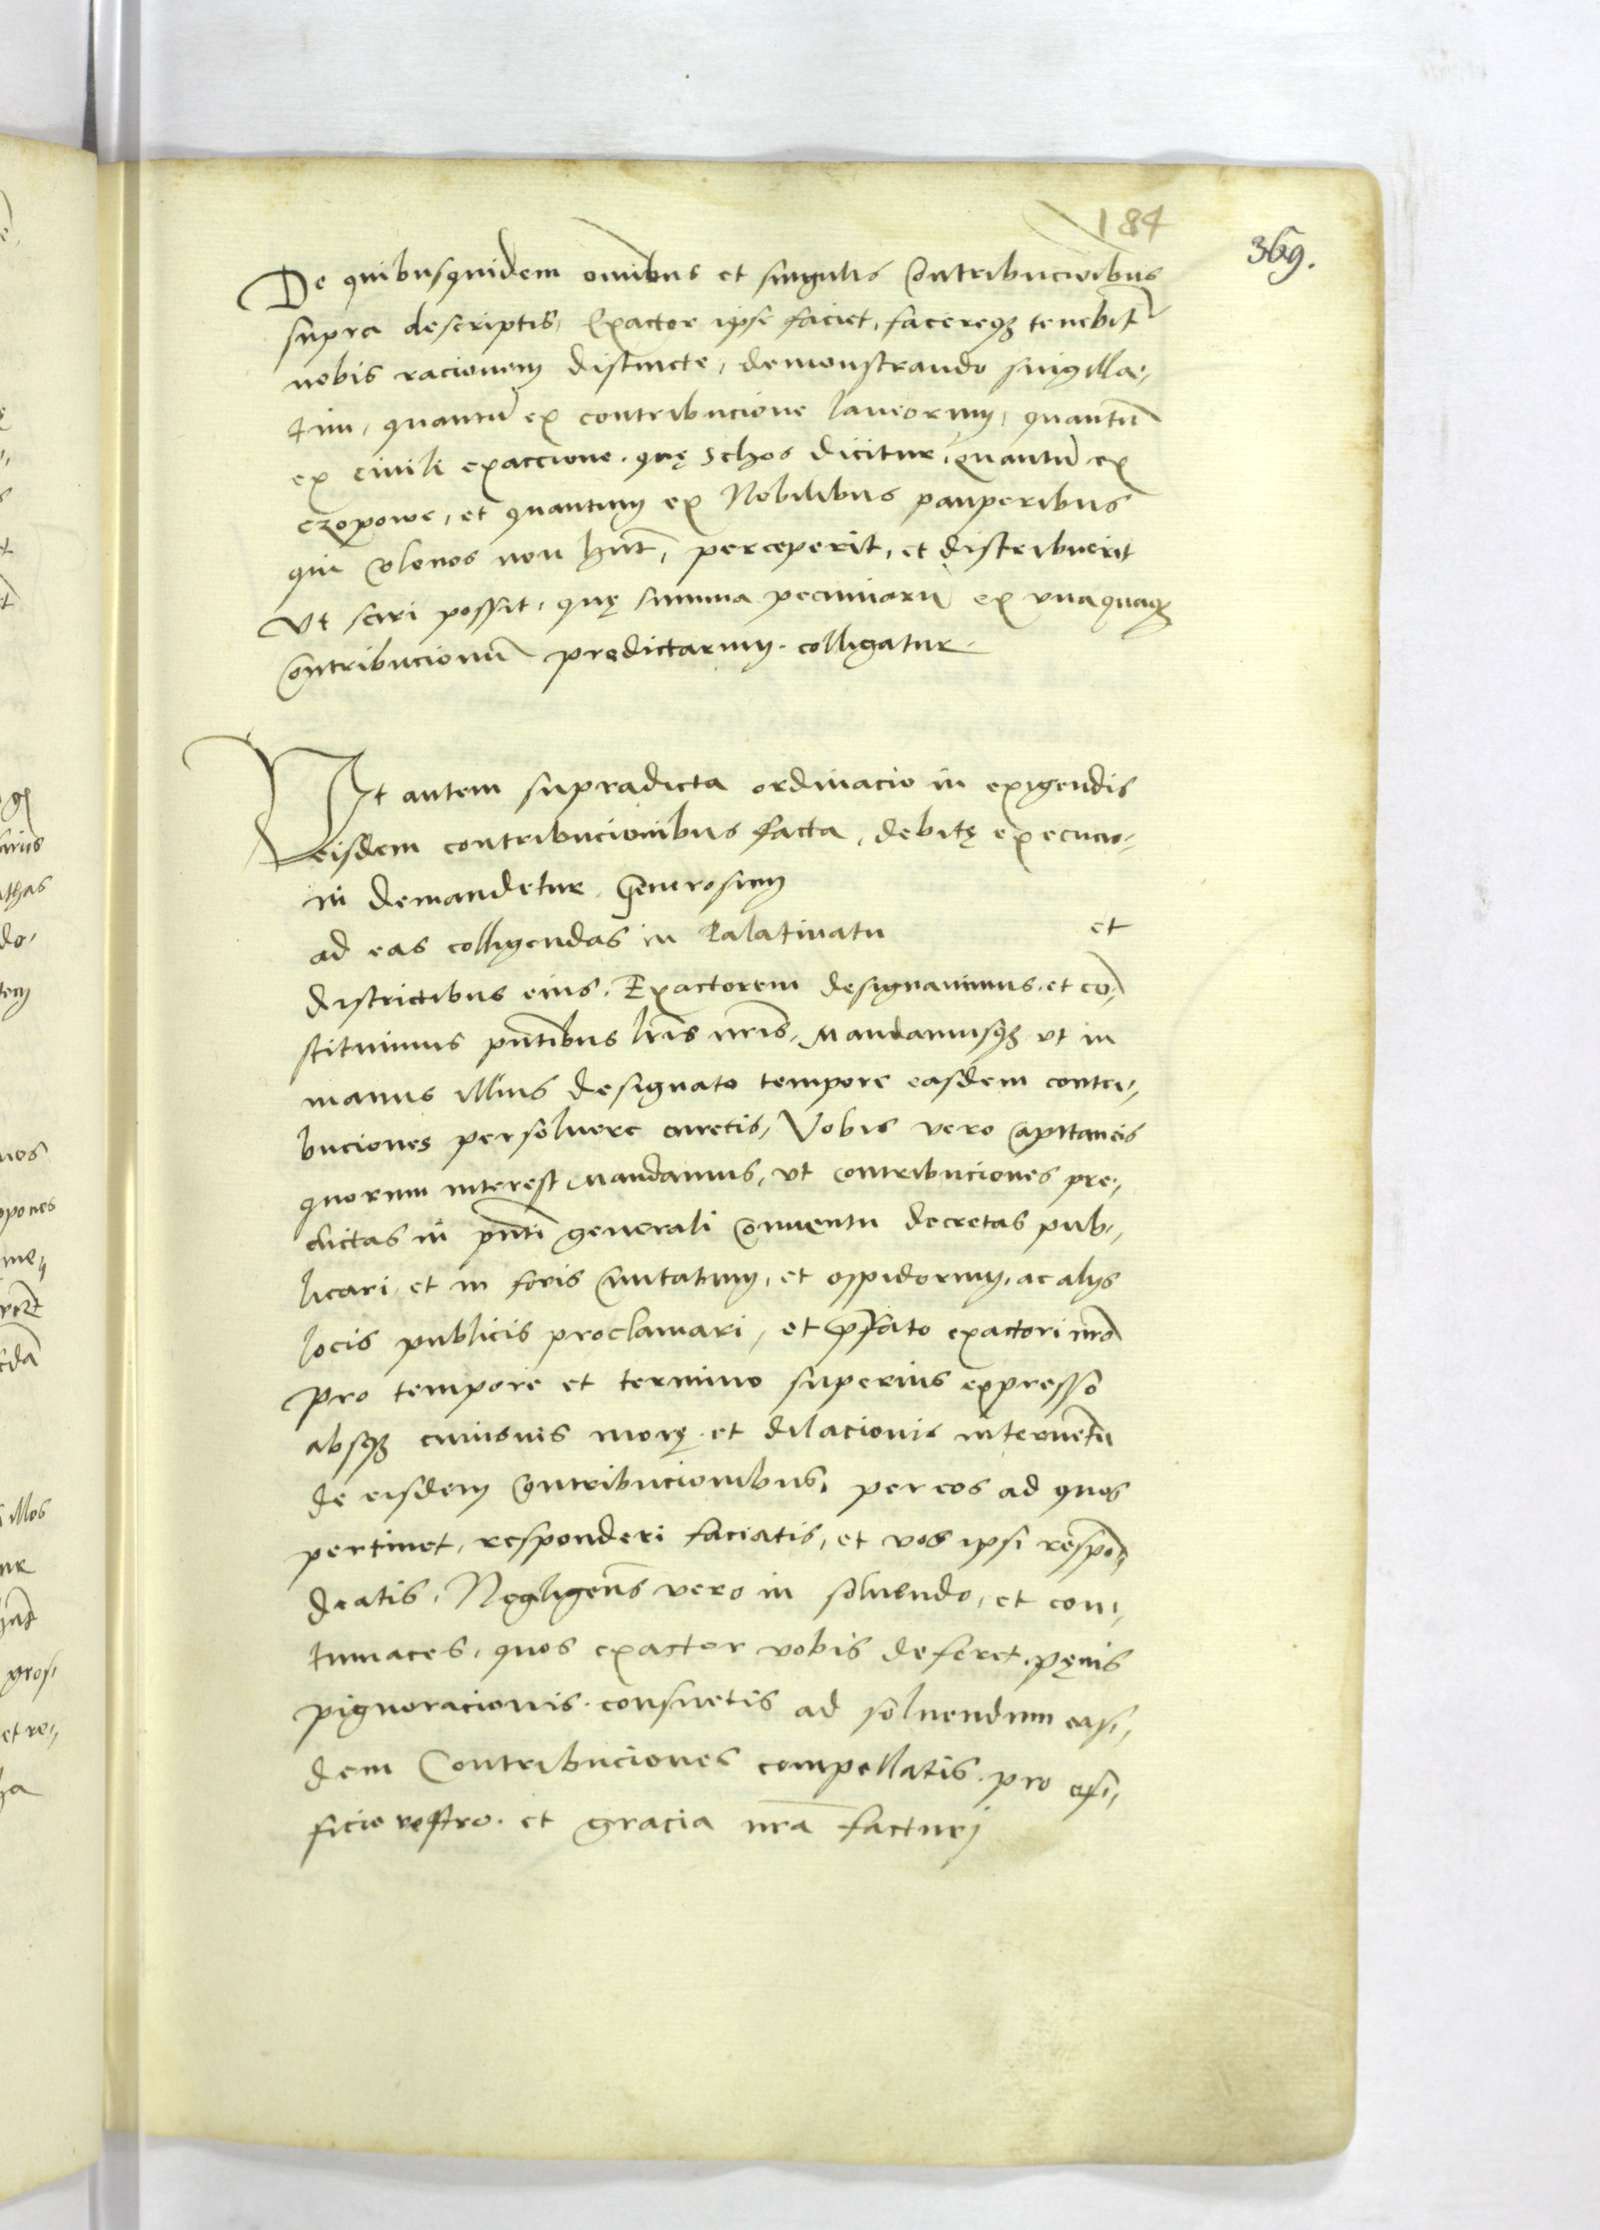 184
369.
De quibusquidem omnibus et singulis Contribucionibus
supra descriptis, Exactor ipse faciet, facereq₃ tenebit᷑
nobis racionem distincte, demonstrando singilla-
tim, quantū ex contribucione laneorum, quantū
ex ciuili exaccione, quę Schos dicitur, quantū ex
czopowe, et quantum ex Nobilibus pauperibus
qui colonos non hn̄t, perceperit, et distribuerit
Vt sciri possit, quę summa pecuniarū ex vnaquaq₃
Contribucionū prędictarum colligatur.
Vt autem supradicta ordinacio in exigendis
eisdem contribucionibus facta, debitę execucio-
ni demandetur, Generosum
ad eas colligendas in Palatinatu et
districtibus eius, Exactorem designauimus, et cō-
stituimus pn̄tibus lr̄is nr̄is, Mandamusq₃ vt in
manus illius designato tempore easdem contri-
buciones persoluere curetis, Vobis vero Capitaneis
quorum interest mandamus, vt contribuciones pre-
dictas in pn̄ti generali Conuentu decretas pub-
licari, et in foris Ciuitatum, et oppidorum, ac alijs
locis publicis proclamari, et p̄fato exactori nr̄o
pro tempore et termino superius expresso
absq₃ cuiusuis morę et dilacionis interuētu
de eisdem Contribucionibus, per eos ad quos
pertinet, responderi faciatis, et vos ipsi respō-
deatis, Negligen̄s vero in soluendo, et con-
tumaces, quos exactor vobis deferet, pęnis
pignoracionis consuetis ad soluendum eas-
dem Contribuciones compellatis, pro of-
ficio vestro, et gracia nr̄a facturi